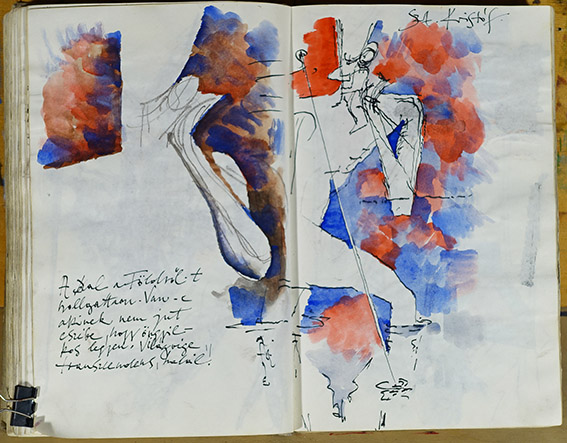 Szt. Kristóf
A Dal a Földről-t
hallgattam. Van-e
akinek nem jut
eszébe, hogy öngyil-
kos legyen? Világvége
transzcendens, halál!